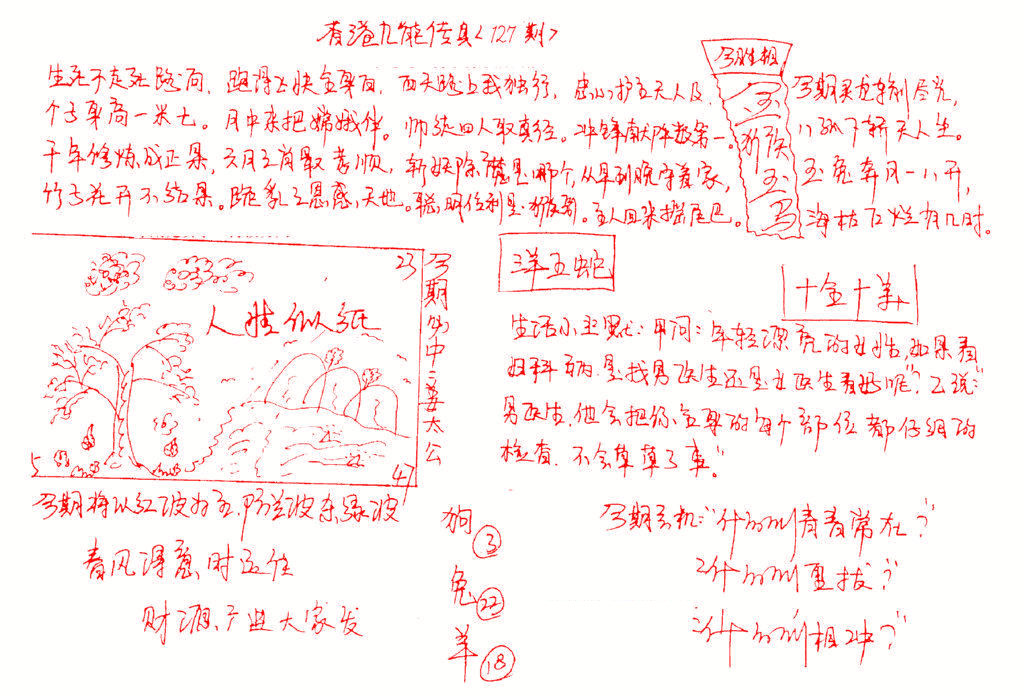 香港九龍传真〈127期〉
生死不走死路向, 跑得飞快全身白, 西天路上我独行, 忠心护主天人及,
个子身高一米七。月中来把嫦娥伴。师徒四人取真经。冲锋献阵数第一。
千年修炼成正果, 六月三肖最孝顺, 斩妖除魔是哪个, 从早到晚守着家,
竹子花开不结果。跪乳之恩感天地。聪明伶利是猴哥。主人回来摇尾巴。
今期
玉
猴
玉
今期灵龙转制尽光,
玉兔奔月一八开,
海枯石烂有几时。
23
人生似纸
5
47
今期旁中三姜太公
三羊五蛇
十全十美
生活小幽默: 甲问: "年轻漂亮的女性, 如果看
妇科病是找男医生还是女医生看好呢"? 乙说: "
男医生, 他会把你全身的每个部位都仔细的
检查, 不会草草了事"
今期将以红波为主, 防兰波东绿波
春风得意时运佳
财源产进大家发
狗 ③
兔 22
羊 18
今期玄机: "什么叫青春常在?"
2什么叫重拔?"
3什么叫相冲?"